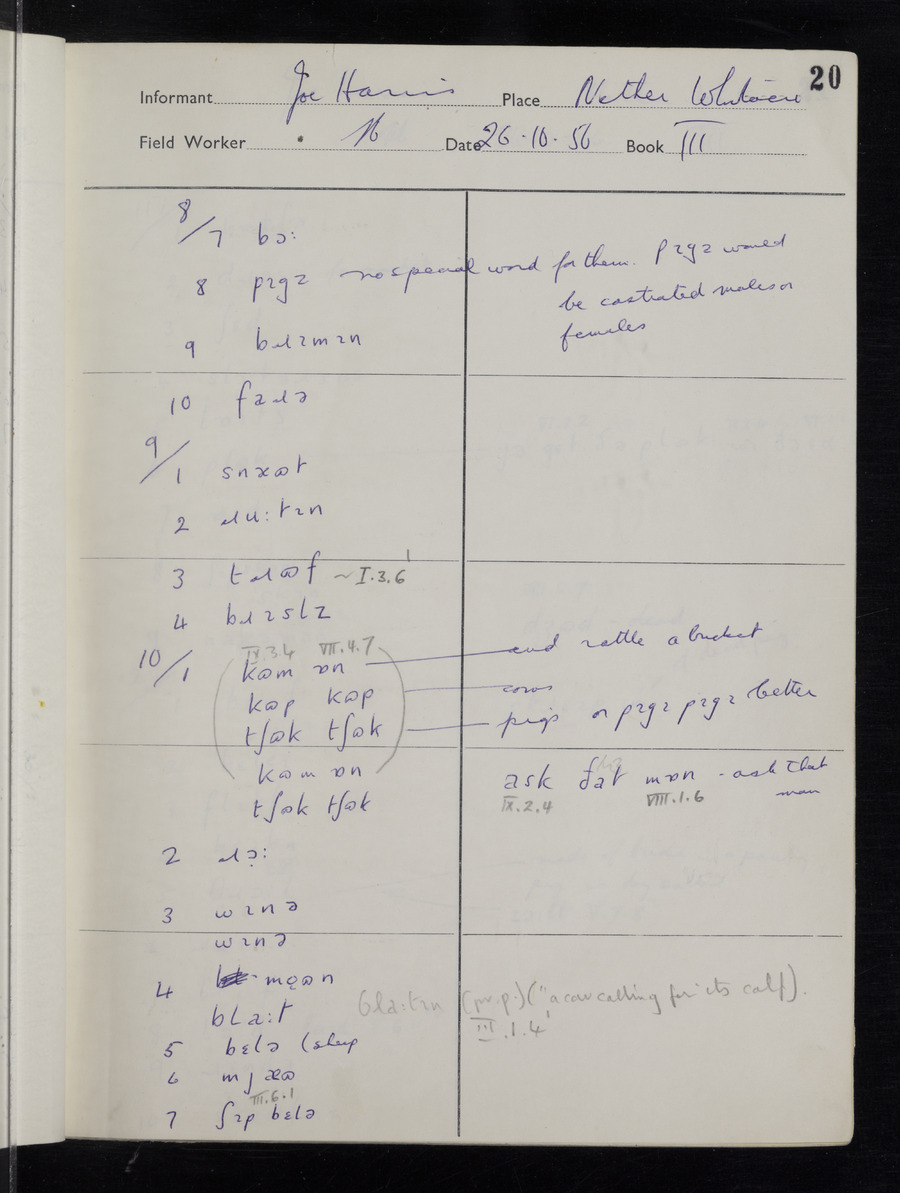 20
Informant Joe Harris Place Nether Whitacre
Field Worker Date 26·10·56 Book III
8/7 bɔ:
8 pɪgz no special word for them. pɪgz would
be castrated males or
females
9 bɹɪmɪn
10 faɹə
9/1 snaʊt
2 ɹu:tɪn
3 tɹɒf ~ I.3.6
4 bɹɪslz
IX.3.4 VII.4.7
10/1 kɷm ɒn and rattle a bucket
kɷp kɷp cows
tʃɷk tʃɷk pigs or pɪgz pɪgz better
kɷm ɒn ask ðat mɒn - ask that
man
IX.2.4 VIII.1.6
tʃɷk tʃɷk
2 ɹɔ:
3 wɪnə
wɪnə
4 mɷn
blɑ:t blɑ:tɪn (pr.p.) ("a cow calling for its calf").
III.1.4
5 bɛlə (sheep
6 mjaɷ
III.6.1
7 ʃɪp bɛlə